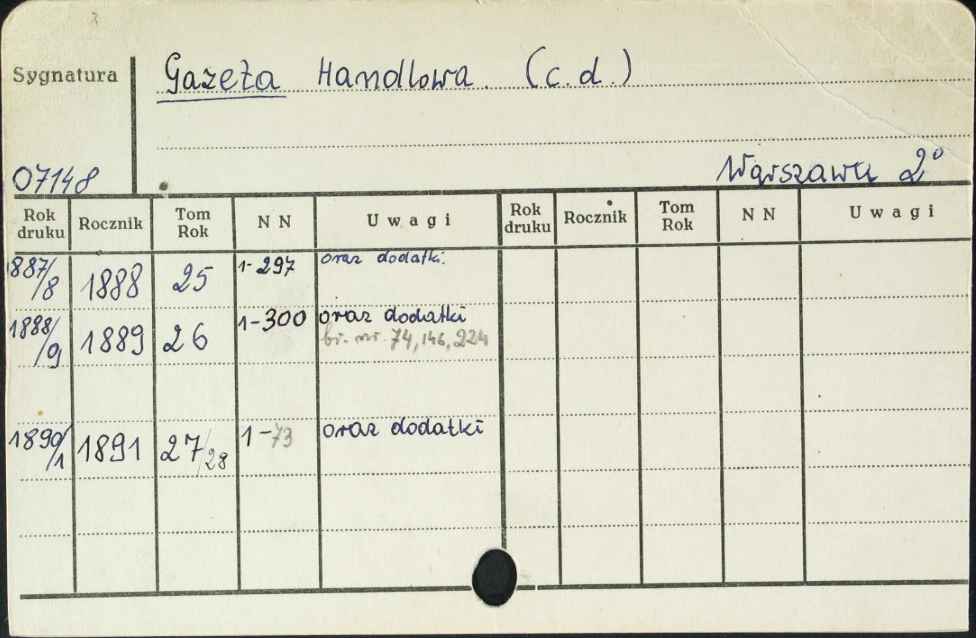 Sygnatura
Gazeta Handlowa. (c.d.)
07148
Warszawa 2°
Rok druku Rocznik Tom Rok N N Uwagi Rok druku Rocznik Tom Rok N N Uwagi
1887/8 1888 25 1-297 oraz dodatki.
1888/9 1889 26 1-300 oraz dodatki
br. nr. 74, 146, 224
1890/1 1891 27/28 1-73 oraz dodatki